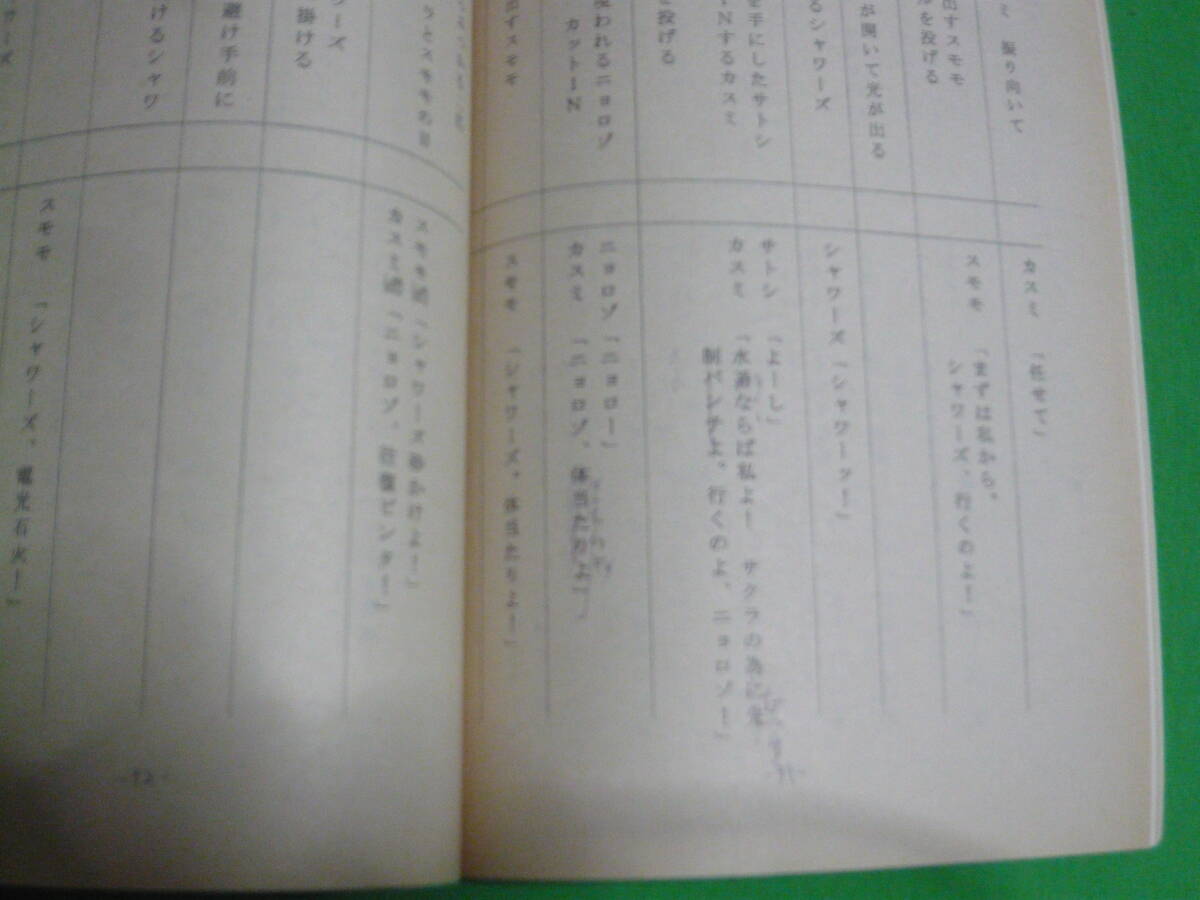 ミ 振り向いて
出すスモモ
ルを投げる
が開いて光が出る
るシャワーズ
を手にしたサトシ
INするカスミ
を投げる
われるニョロゾ
カットIN
出すスモモ
カスミ 「任せて」
スモモ 「まずは私から。
シャワーズ、行くのよ!」
シャワーズ 「シャワーッ!」
サトシ 「よーし」
カスミ 「水道ならば私よ! サクラの為に先
制パンチよ。行くのよ、ニョロゾ!」
ニョロゾ 「ニョロー」
カスミ 「ニョロゾ、体当たりよ」
スモモ 「シャワーズ、体当たりよ!」
-71-
うとスモモの目
ワーズ
掛ける
避け手前に
けるシャワ
ワーズ
スモモ 「シャワーズ よ!」
カスミ 「ニョロゾ、往復ビンタ!」
スモモ 「シャワーズ、電光石火!」
-72-